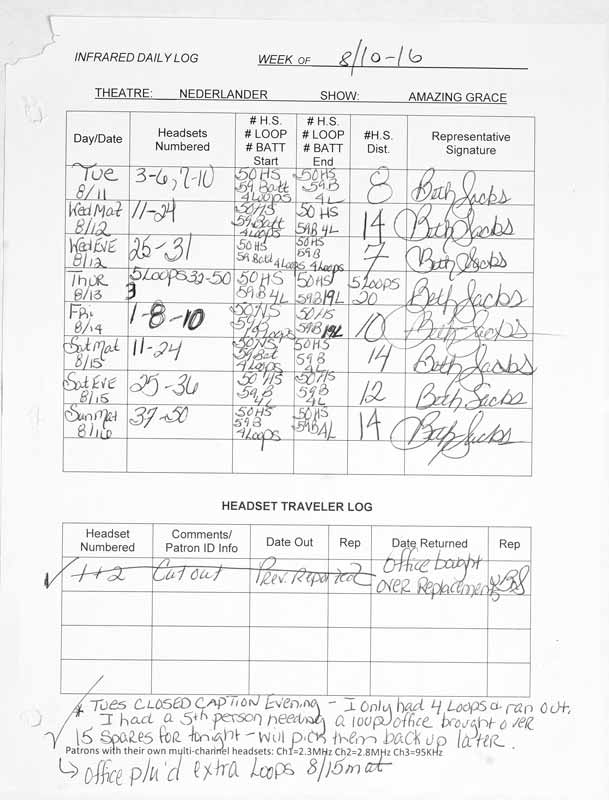 INFRARED DAILY LOG WEEK OF 8/10-16
THEATRE: NEDERLANDER SHOW: AMAZING GRACE
Day/Date Headsets Numbered # H.S. # LOOP # BATT Start # H.S. # LOOP # BATT End #H.S. Dist. Representative Signature
Tue 8/11 3-6, 7-10 50 HS 59 Batt 4 Loops 50 HS 59 B 4L 8 Beth Jacks
Wed Mat 8/12 11-24 50 HS 59 Batt 4 Loops 50 HS 59B 4L 14 Beth Jacks
Wed EVE 8/12 25-31 50 HS 59 Batt 4 Loops 50 HS 59 B 4 Loops 7 Beth Jacks
Thur 8/13 5 Loops 32-50 50 HS 59 B 4L 50 HS 59 B 19L 5 Loops 20 Beth Jacks
Fri 8/14 1-8-10 50 HS Loops 50 HS 59B 19L 10 Beth Jacks
Sat Mat 8/15 11-24 50 HS 59 Batt 4 Loops 50 HS 59 B 4L 14 Beth Jacks
Sat EVE 8/15 25-36 50 HS 59 B 4L 50 HS 59 B 4L 12 Beth Jacks
Sun Mat 8/16 37-50 50 HS 59 B 4 Loops 50 HS 59B 4L 14 Beth Jacks
HEADSET TRAVELER LOG
Headset Numbered Comments/ Patron ID Info Date Out Rep Date Returned Rep
✓ 1+2 Cut out Prev. Reported Office bought over Replacements BJ
* TUES CLOSED CAPTION Evening - I only had 4 Loops & ran out.
I had a 5th person needing a loop, office brought over
✓ 15 SPARES for tonight - will pick them back up later.
Patrons with their own multi-channel headsets: Ch1=2.3MHz Ch2=2.8MHz Ch3=95KHz
↳ office p/u'd extra Loops 8/15 mat